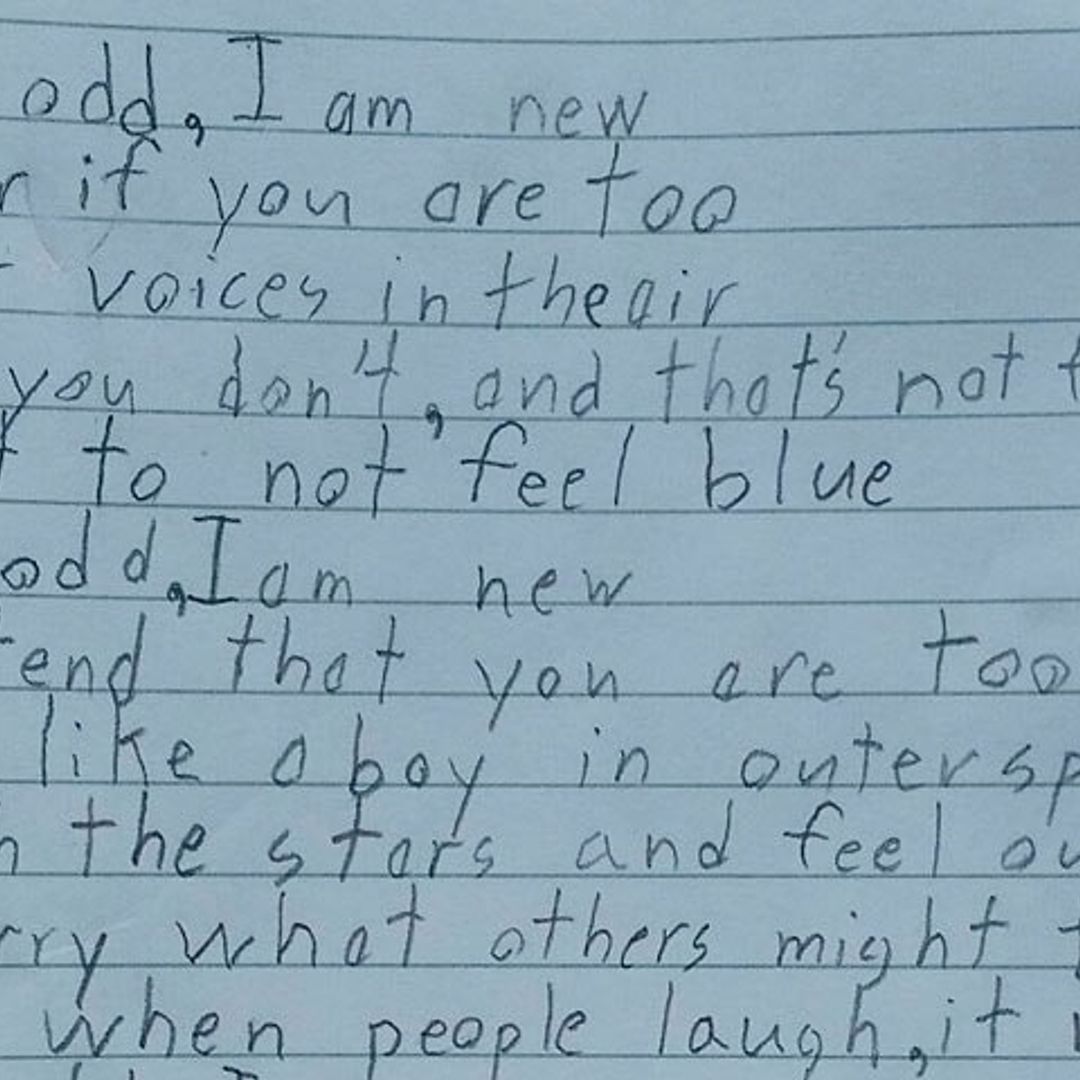 odd, I am new
if you are too
voices in the air
you don't, and that's not
to not feel blue
odd, I am new
that you are too
like a boy in outer
the stars and feel
what others might
when people laugh, it